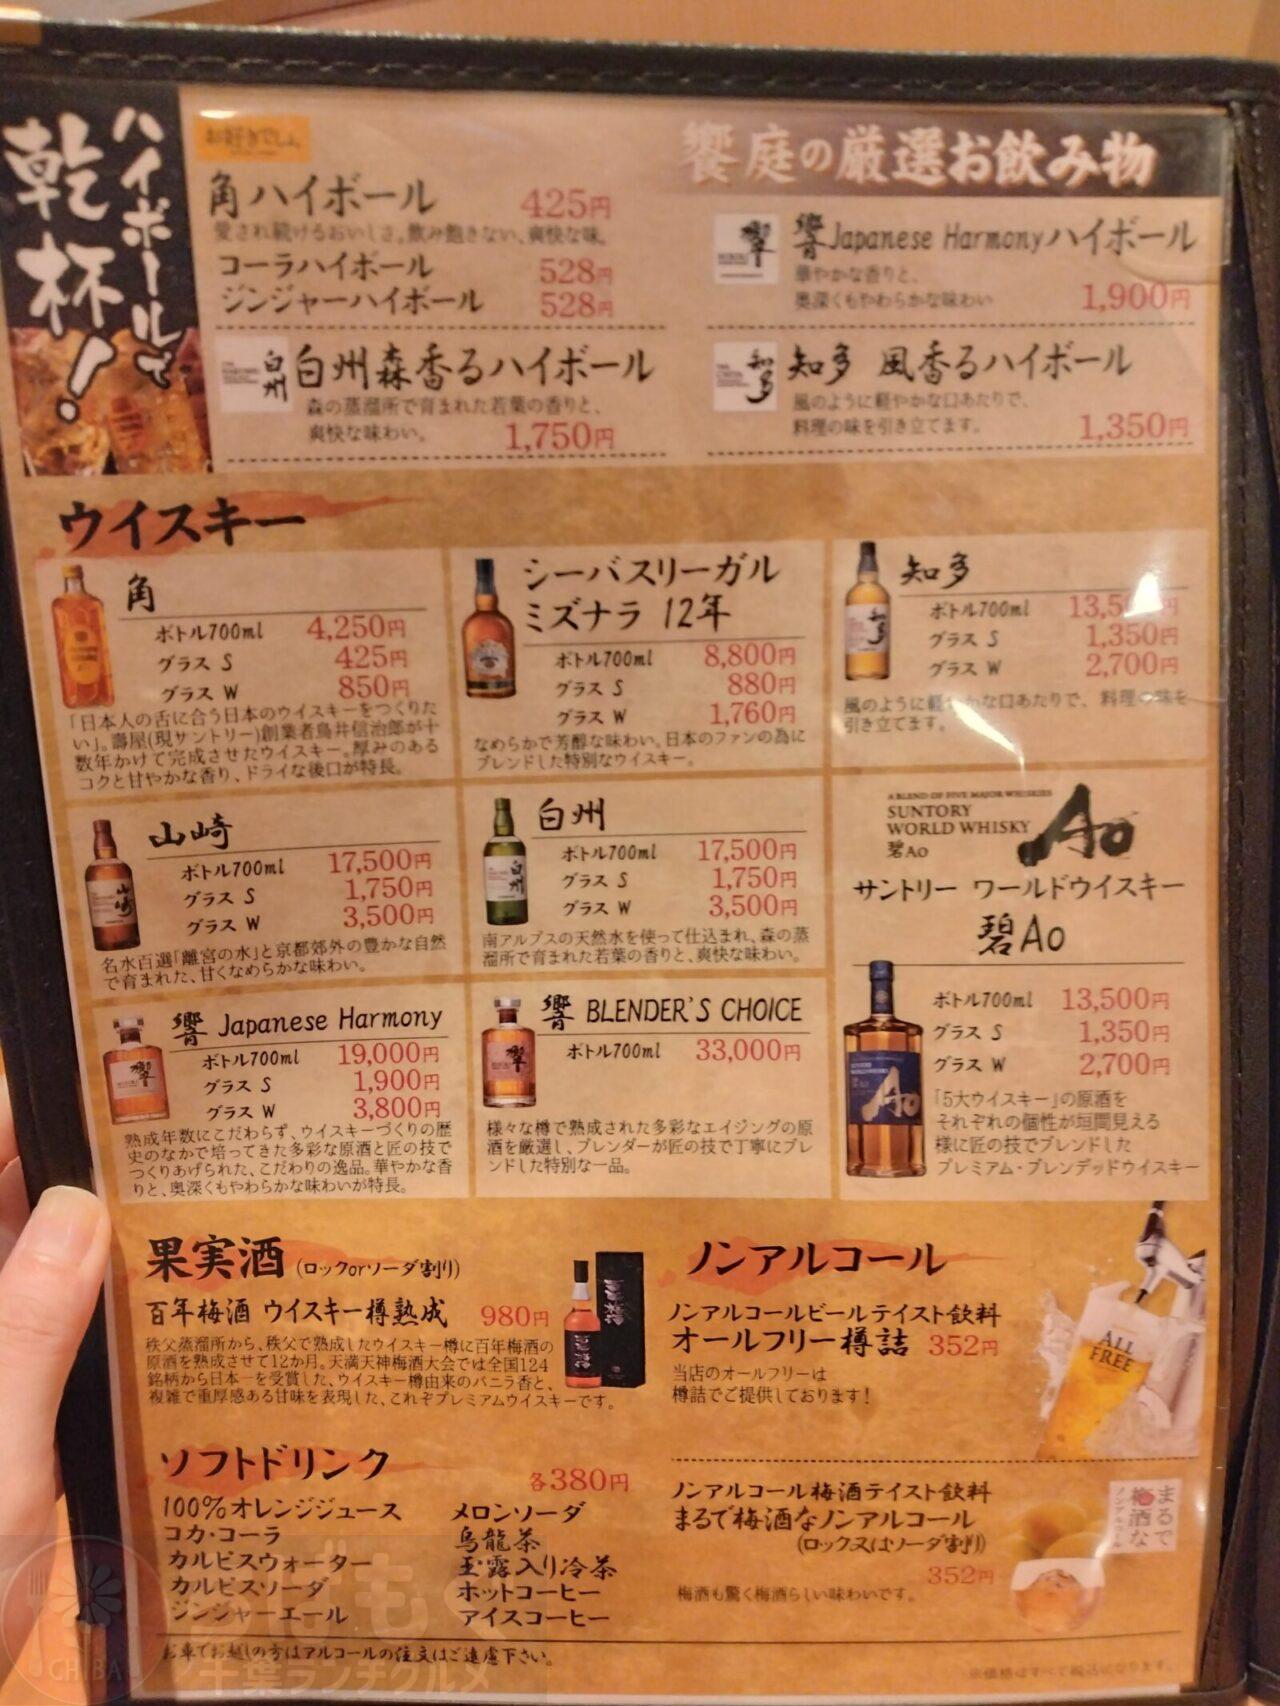 ハイボールで
乾杯！
お好きでしょ。
角ハイボール 425円
愛され続けるおいしさ。飲み飽きない、爽快な味。
コーラハイボール 528円
ジンジャーハイボール 528円
白州 白州森香るハイボール
森の蒸溜所で育まれた若葉の香りと、
爽快な味わい。 1,750円
饗庭の厳選お飲み物
響 響Japanese Harmonyハイボール
華やかな香りと、
奥深くもやわらかな味わい 1,900円
知多 知多 風香るハイボール
風のように軽やかな口あたりで、
料理の味を引き立てます。 1,350円
ウイスキー
角
ボトル700ml 4,250円
グラス S 425円
グラス W 850円
「日本人の舌に合う日本のウイスキーをつくりた
い」。壽屋(現サントリー)創業者鳥井信治郎が十
数年かけて完成させたウイスキー。厚みのある
コクと甘やかな香り、ドライな後口が特長。
シーバスリーガル
ミズナラ 12年
ボトル700ml 8,800円
グラス S 880円
グラス W 1,760円
なめらかで芳醇な味わい。日本のファンの為に
ブレンドした特別なウイスキー。
知多
ボトル700ml 13,5
グラス S 1,350円
グラス W 2,700円
風のように軽やかな口あたりで、料理の味を
引き立てます。
山崎
ボトル700ml 17,500円
グラス S 1,750円
グラス W 3,500円
名水百選「離宮の水」と京都郊外の豊かな自然
で育まれた、甘くなめらかな味わい。
白州
ボトル700ml 17,500円
グラス S 1,750円
グラス W 3,500円
南アルプスの天然水を使って仕込まれ、森の蒸
溜所で育まれた若葉の香りと、爽快な味わい。
A BLEND OF FIVE MAJOR WHISKIES
SUNTORY
WORLD WHISKY
碧Ao
Ao
サントリー ワールドウイスキー
碧Ao
ボトル700ml 13,500円
グラス S 1,350円
グラス W 2,700円
「5大ウイスキー」の原酒を
それぞれの個性が垣間見える
様に匠の技でブレンドした
プレミアム・ブレンデッドウイスキー
響 Japanese Harmony
ボトル700ml 19,000円
グラス S 1,900円
グラス W 3,800円
熟成年数にこだわらず、ウイスキーづくりの歴
史のなかで培ってきた多彩な原酒と匠の技で
つくりあげられた、こだわりの逸品。華やかな香
りと、奥深くもやわらかな味わいが特長。
響 BLENDER'S CHOICE
ボトル700ml 33,000円
様々な樽で熟成された多彩なエイジングの原
酒を厳選し、ブレンダーが匠の技で丁寧にブレ
ンドした特別な一品。
果実酒 (ロックorソーダ割り)
百年梅酒 ウイスキー樽熟成 980円
秩父蒸溜所から、秩父で熟成したウイスキー樽に百年梅酒の
原酒を熟成させて12か月。天満天神梅酒大会では全国124
銘柄から日本一を受賞した、ウイスキー樽由来のバニラ香と、
複雑で重厚感ある甘味を表現した、これぞプレミアムウイスキーです。
ノンアルコール
ノンアルコールビールテイスト飲料
オールフリー樽詰 352円
当店のオールフリーは
樽詰でご提供しております！
ALL
FREE
ノンアルコール梅酒テイスト飲料
まるで梅酒なノンアルコール
(ロック又はソーダ割り)
352円
梅酒も驚く梅酒らしい味わいです。
まるで
梅酒な
ノンアルコール
ソフトドリンク 各380円
100%オレンジジュース
コカ・コーラ
カルピスウォーター
カルピスソーダ
ジンジャーエール
メロンソーダ
烏龍茶
玉露入り冷茶
ホットコーヒー
アイスコーヒー
お車でお越しの方はアルコールの注文はご遠慮下さい。
※価格はすべて税込になります。
CHIBA
ちばもぐ
千葉ランチグルメ